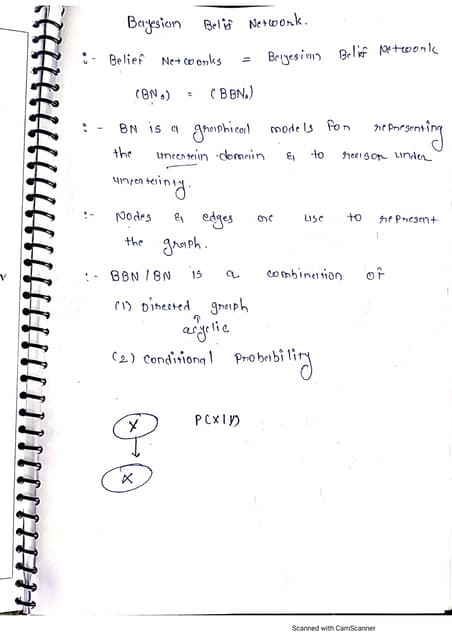 Bayesian Belief Network.
:- Belief Networks = Bayesian Belief Network
(BNs) = (BBNs)
:- BN is a graphical models for representing
the uncertain domain & to reason under
uncertainty.
:- Nodes & edges are use to represent
the graph.
:- BBN/BN is a combination of
(1) Directed graph
acyclic
(2) conditional Probability
X P(X|Y)
X
Scanned with CamScanner